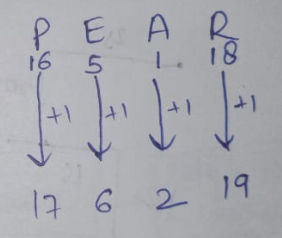 P E A R
16 5 1 18
+1 +1 +1 +1
17 6 2 19